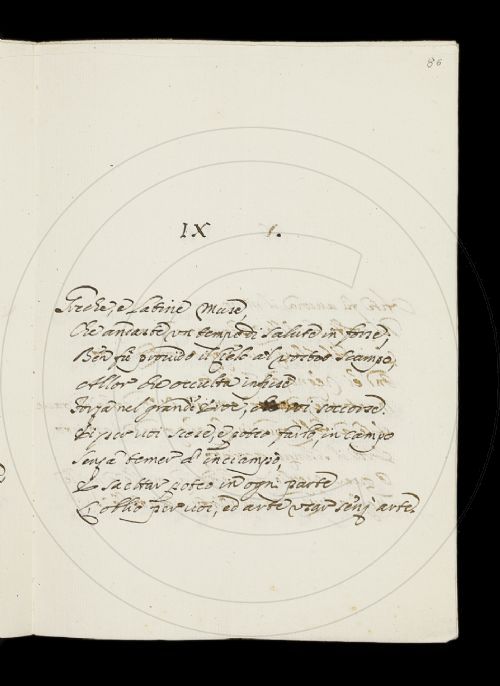 86
IX 1.
Greche, e Latine Muse,
Che andaste un tempo di salute in forse,
Ben fu provido il Cielo al vostro scampo,
Allor che occulta infuse
Forza nel grande Eroe, voi soccorse.
Ei poi voi scorse, e poteo farlo, in campo
Senza temer d' inciampo,
E saettar poteo in ogni parte
L' oblio per voi, ed arte usar senz' arte.